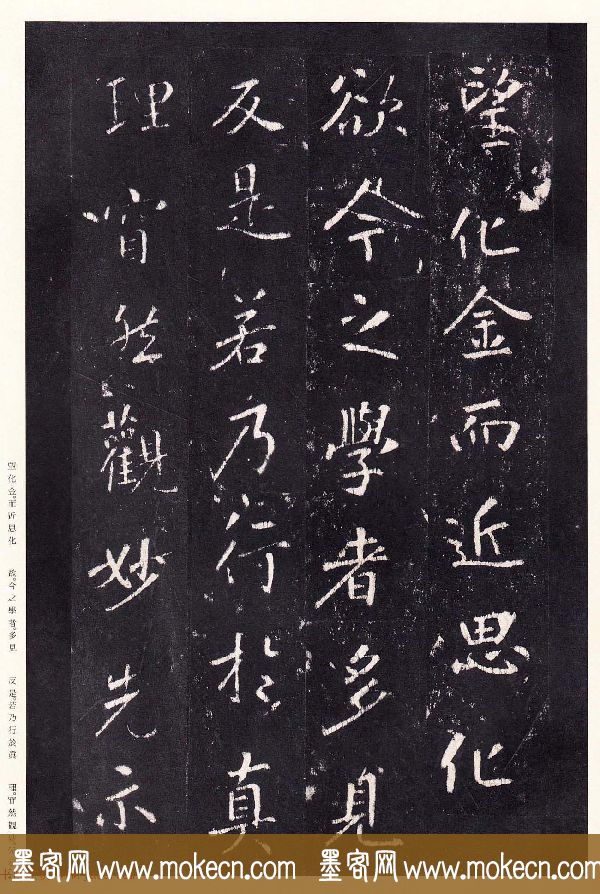 望化金而近思化
欲今之學者多見
反是若乃行於真
理窅然觀妙先示
望化金而近思化
欲今之學者多見
反是若乃行於眞
理窅然觀
墨客网 www.mokecn.com 墨客网 www.mokecn.com